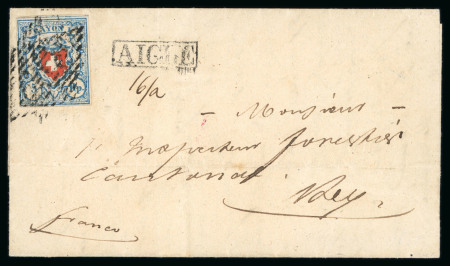 RAYON
AIGLE
16/a
— Monsieur —
Inspecteur forestier
Cantonal.
Bex,
franco